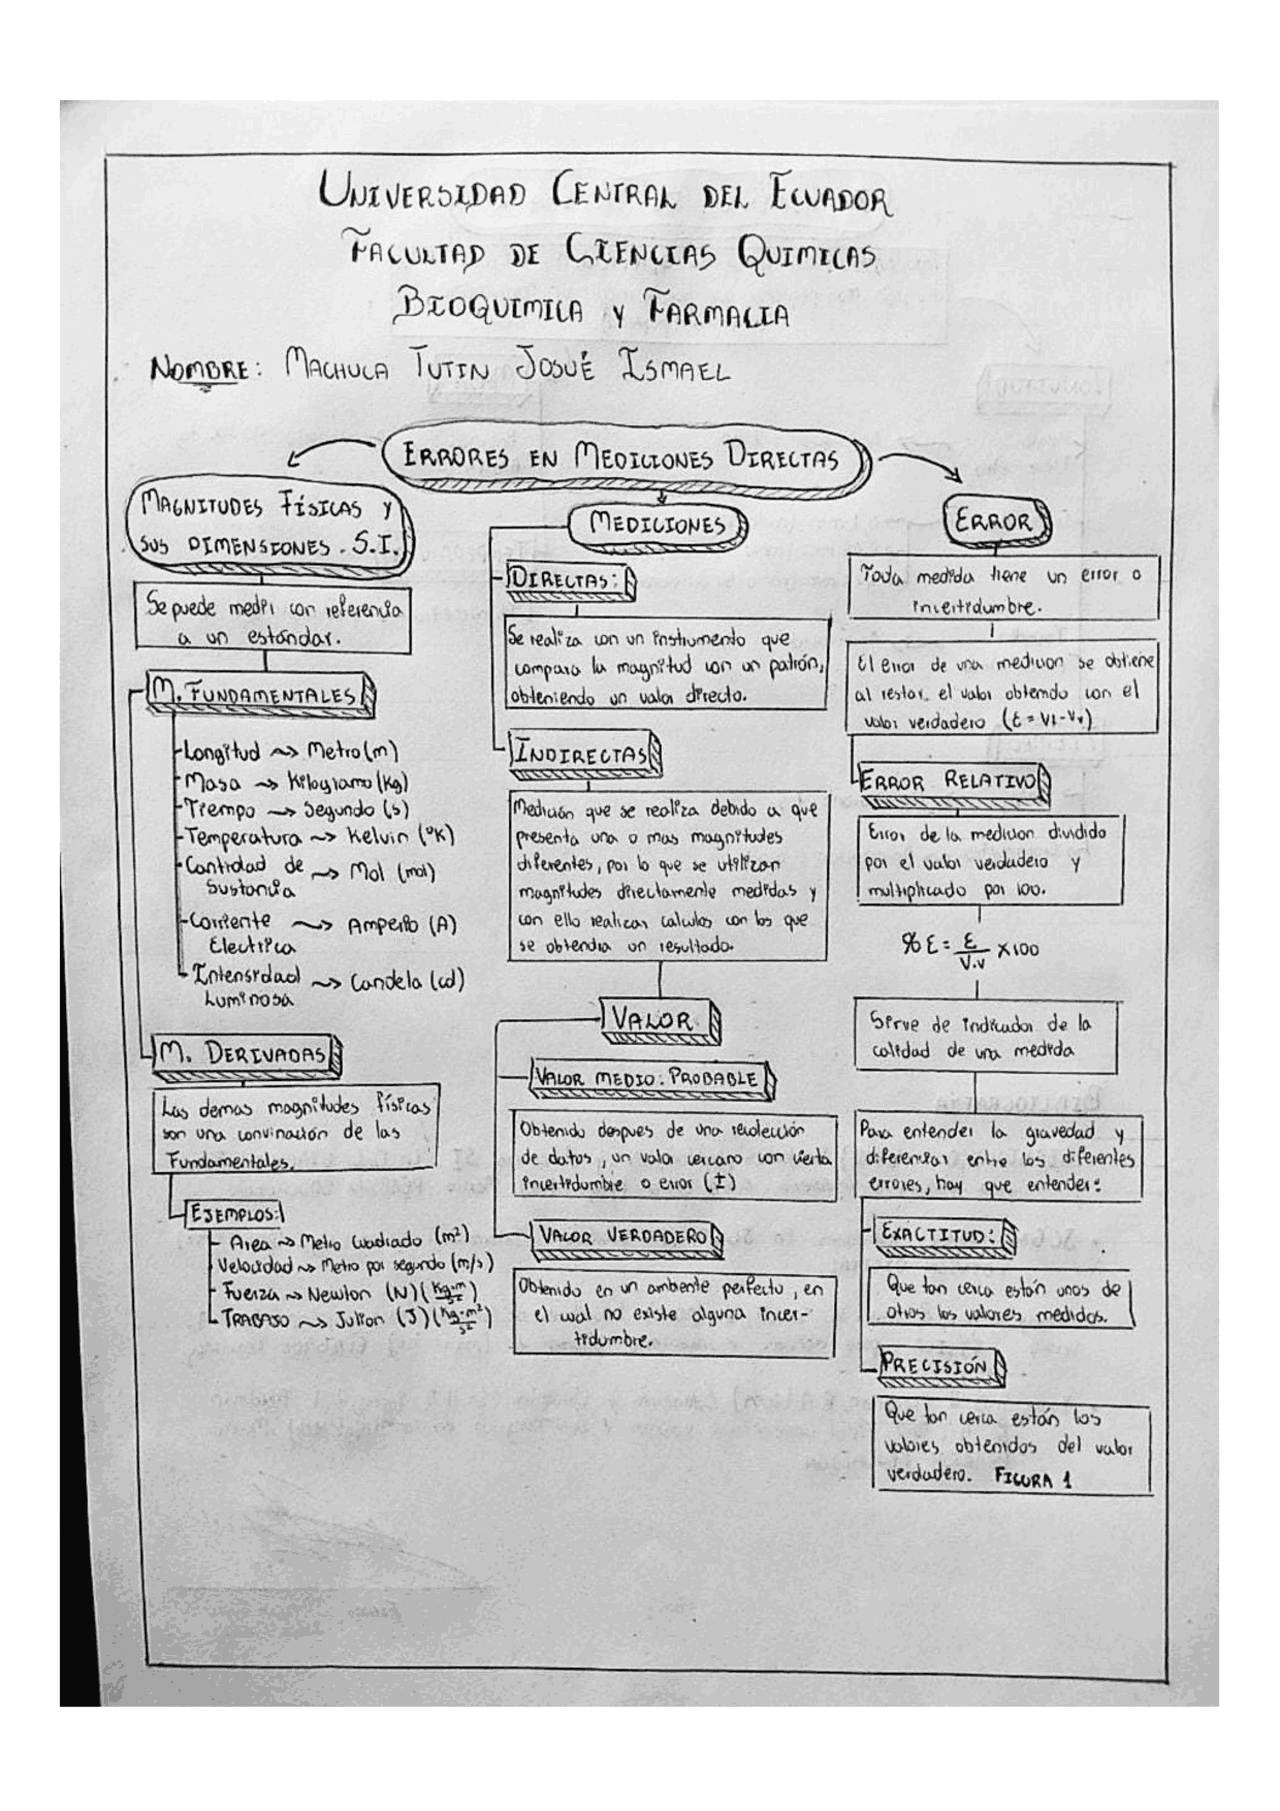 UNIVERSIDAD CENTRAL DEL ECUADOR
FACULTAD DE CIENCIAS QUIMICAS
BIOQUIMICA Y FARMACIA
NOMBRE: MACHUCA TUTIN JOSUÉ ISMAEL
ERRORES EN MEDICIONES DIRECTAS
MAGNITUDES FÍSICAS Y
SUS DIMENSIONES. S.I.
Se puede medir con referencia
a un estándar.
M. FUNDAMENTALES
Longitud ~> Metro (m)
Masa ~> Kilogramo (Kg)
Tiempo ~> Segundo (s)
Temperatura ~> Kelvin (°K)
Cantidad de ~> Mol (mol)
Sustancia
Corriente ~> Amperio (A)
Electrica
Intensidad ~> Candela (cd)
Luminosa
M. DERIVADAS
Las demas magnitudes físicas
son una convinación de las
Fundamentales.
EJEMPLOS:
Area ~> Metro cuadrado (m²)
Velocidad ~> Metro por segundo (m/s)
Fuerza ~> Newton (N) (Kg·m/s²)
TRABAJO ~> Julion (J) (Kg·m²/s²)
MEDICIONES
DIRECTAS:
Se realiza con un instrumento que
compara la magnitud con un patrón,
obteniendo un valor directo.
INDIRECTAS
Medición que se realiza debido a que
presenta una o mas magnitudes
diferentes, por lo que se utilizan
magnitudes directamente medidas y
con ello realizar calculos con los que
se obtendra un resultado.
VALOR
VALOR MEDIO: PROBABLE
Obtenido despues de una recolección
de datos, un valor cercano con cierta
incertidumbre o error (±)
VALOR VERDADERO
Obtenido en un ambente perfecto, en
el cual no existe alguna incer-
tidumbre.
ERROR
Toda medida tiene un error o
incertidumbre.
El error de una medicion se obtiene
al restar el valor obtenido con el
valor verdadero (E = Vi - Vv)
ERROR RELATIVO
Error de la medicion dividido
por el valor verdadero y
multiplicado por 100.
% E = E/V.v X100
Sirve de indicador de la
calidad de una medida
Para entender la gravedad y
diferenciar entre los diferentes
errores, hay que entender:
EXACTITUD:
Que tan cerca están unos de
otros los valores medidos.
PRECISIÓN
Que tan cerca están los
valores obtenidos del valor
verdadero. FIGURA 1